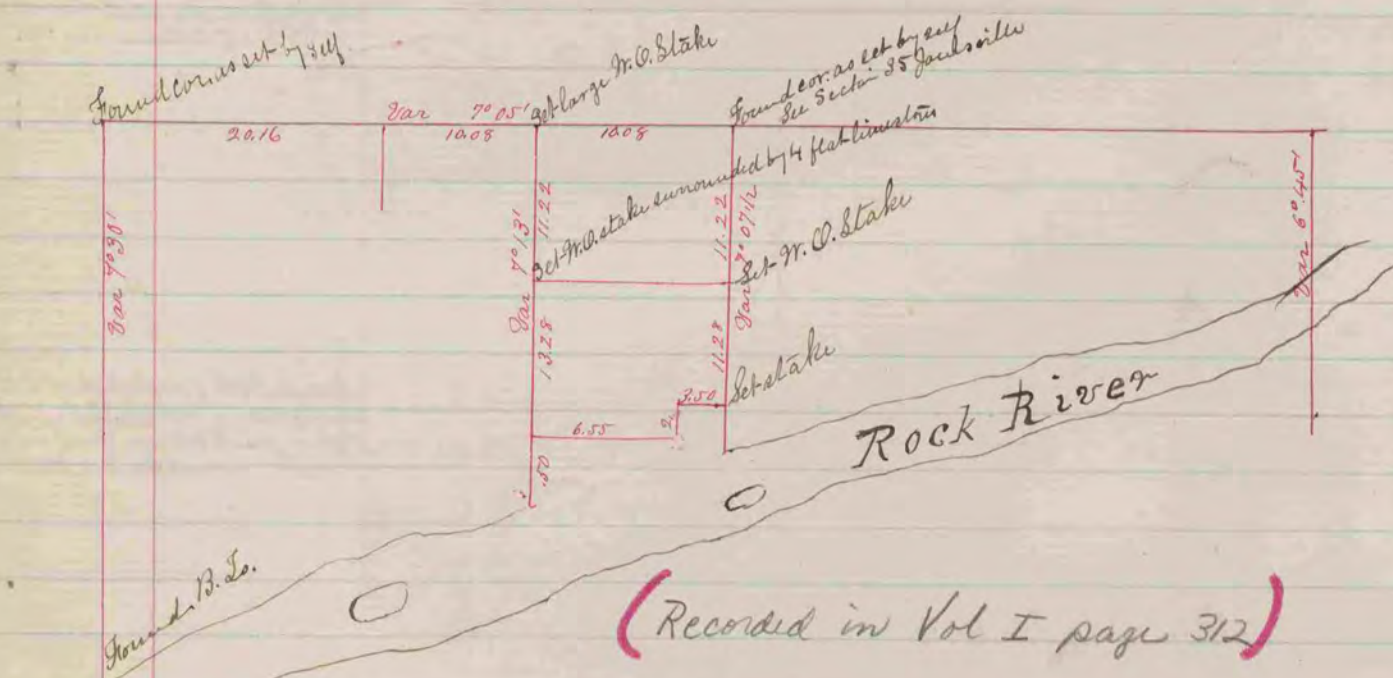 Found cor. as set by self
Var 7° 05'
Set large W.O. Stake
Found cor. as set by self
See Section 35 Janesville
20.16
10.08
10.08
Var
11.22
Var 7° 13'
Set W.O. stake surrounded by 4 flat limestones
11.22
Var 7° 07 1/2
Set W.O. Stake
Var 6° 45'
13.28
11.28
Set stake
3.50
2
6.55
.50
Rock River
Found B. Ts.
(Recorded in Vol I page 312)